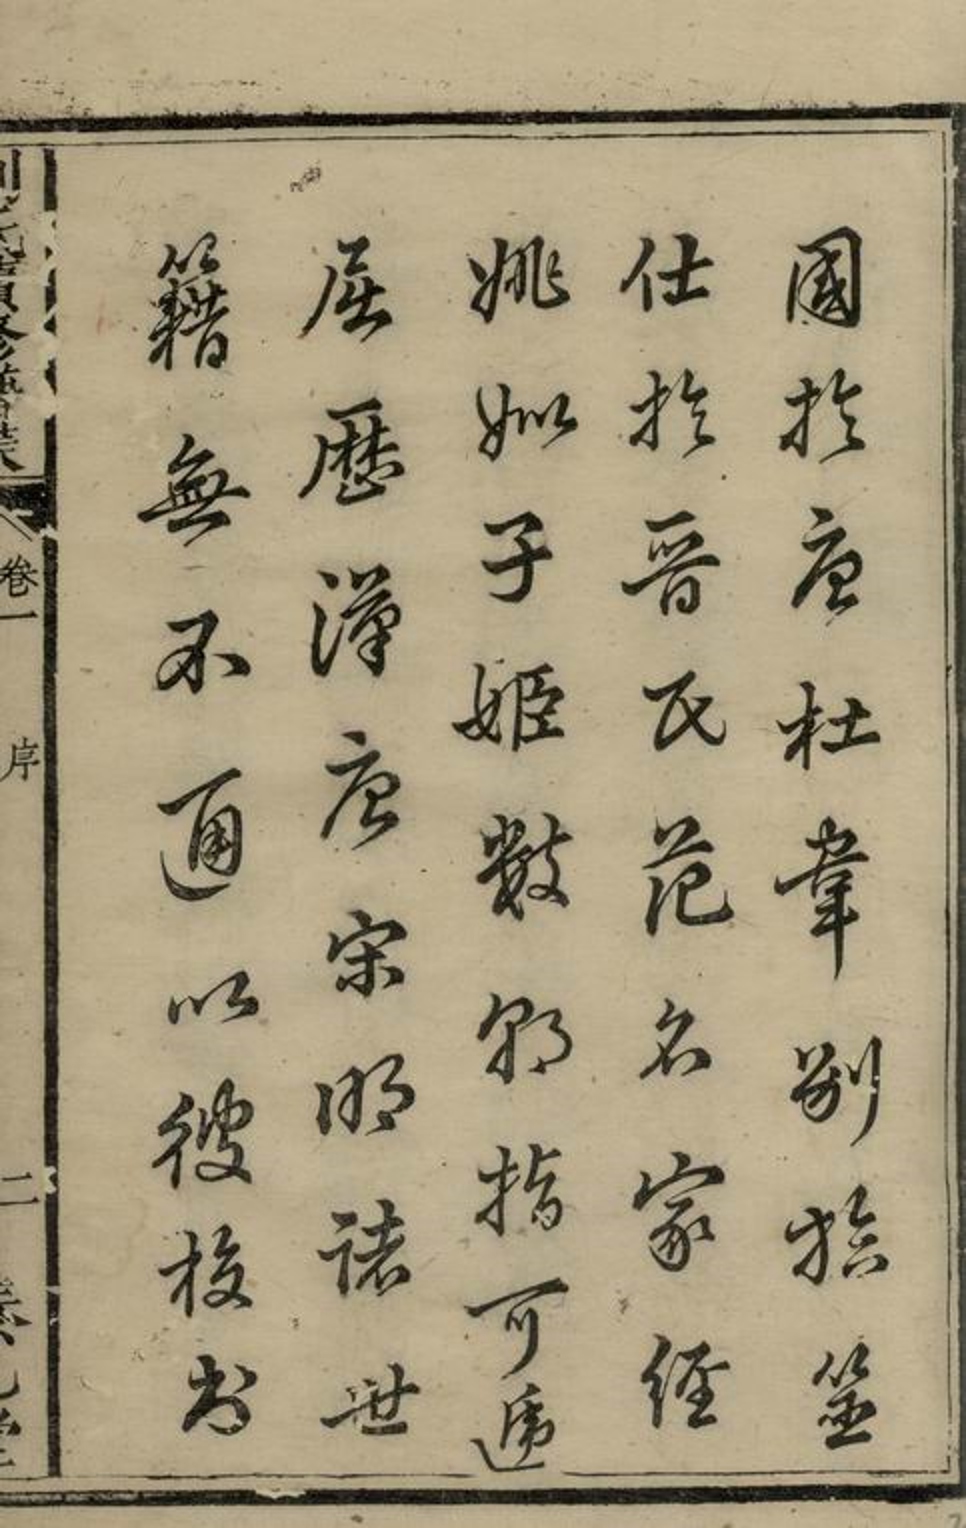 國於唐杜韋別於筮
仕於晉氏范名家經
姚姒子姬數朝指可遞
屈歷漢唐宋明諸世
籍無不通以彼校書
卷一
序
二